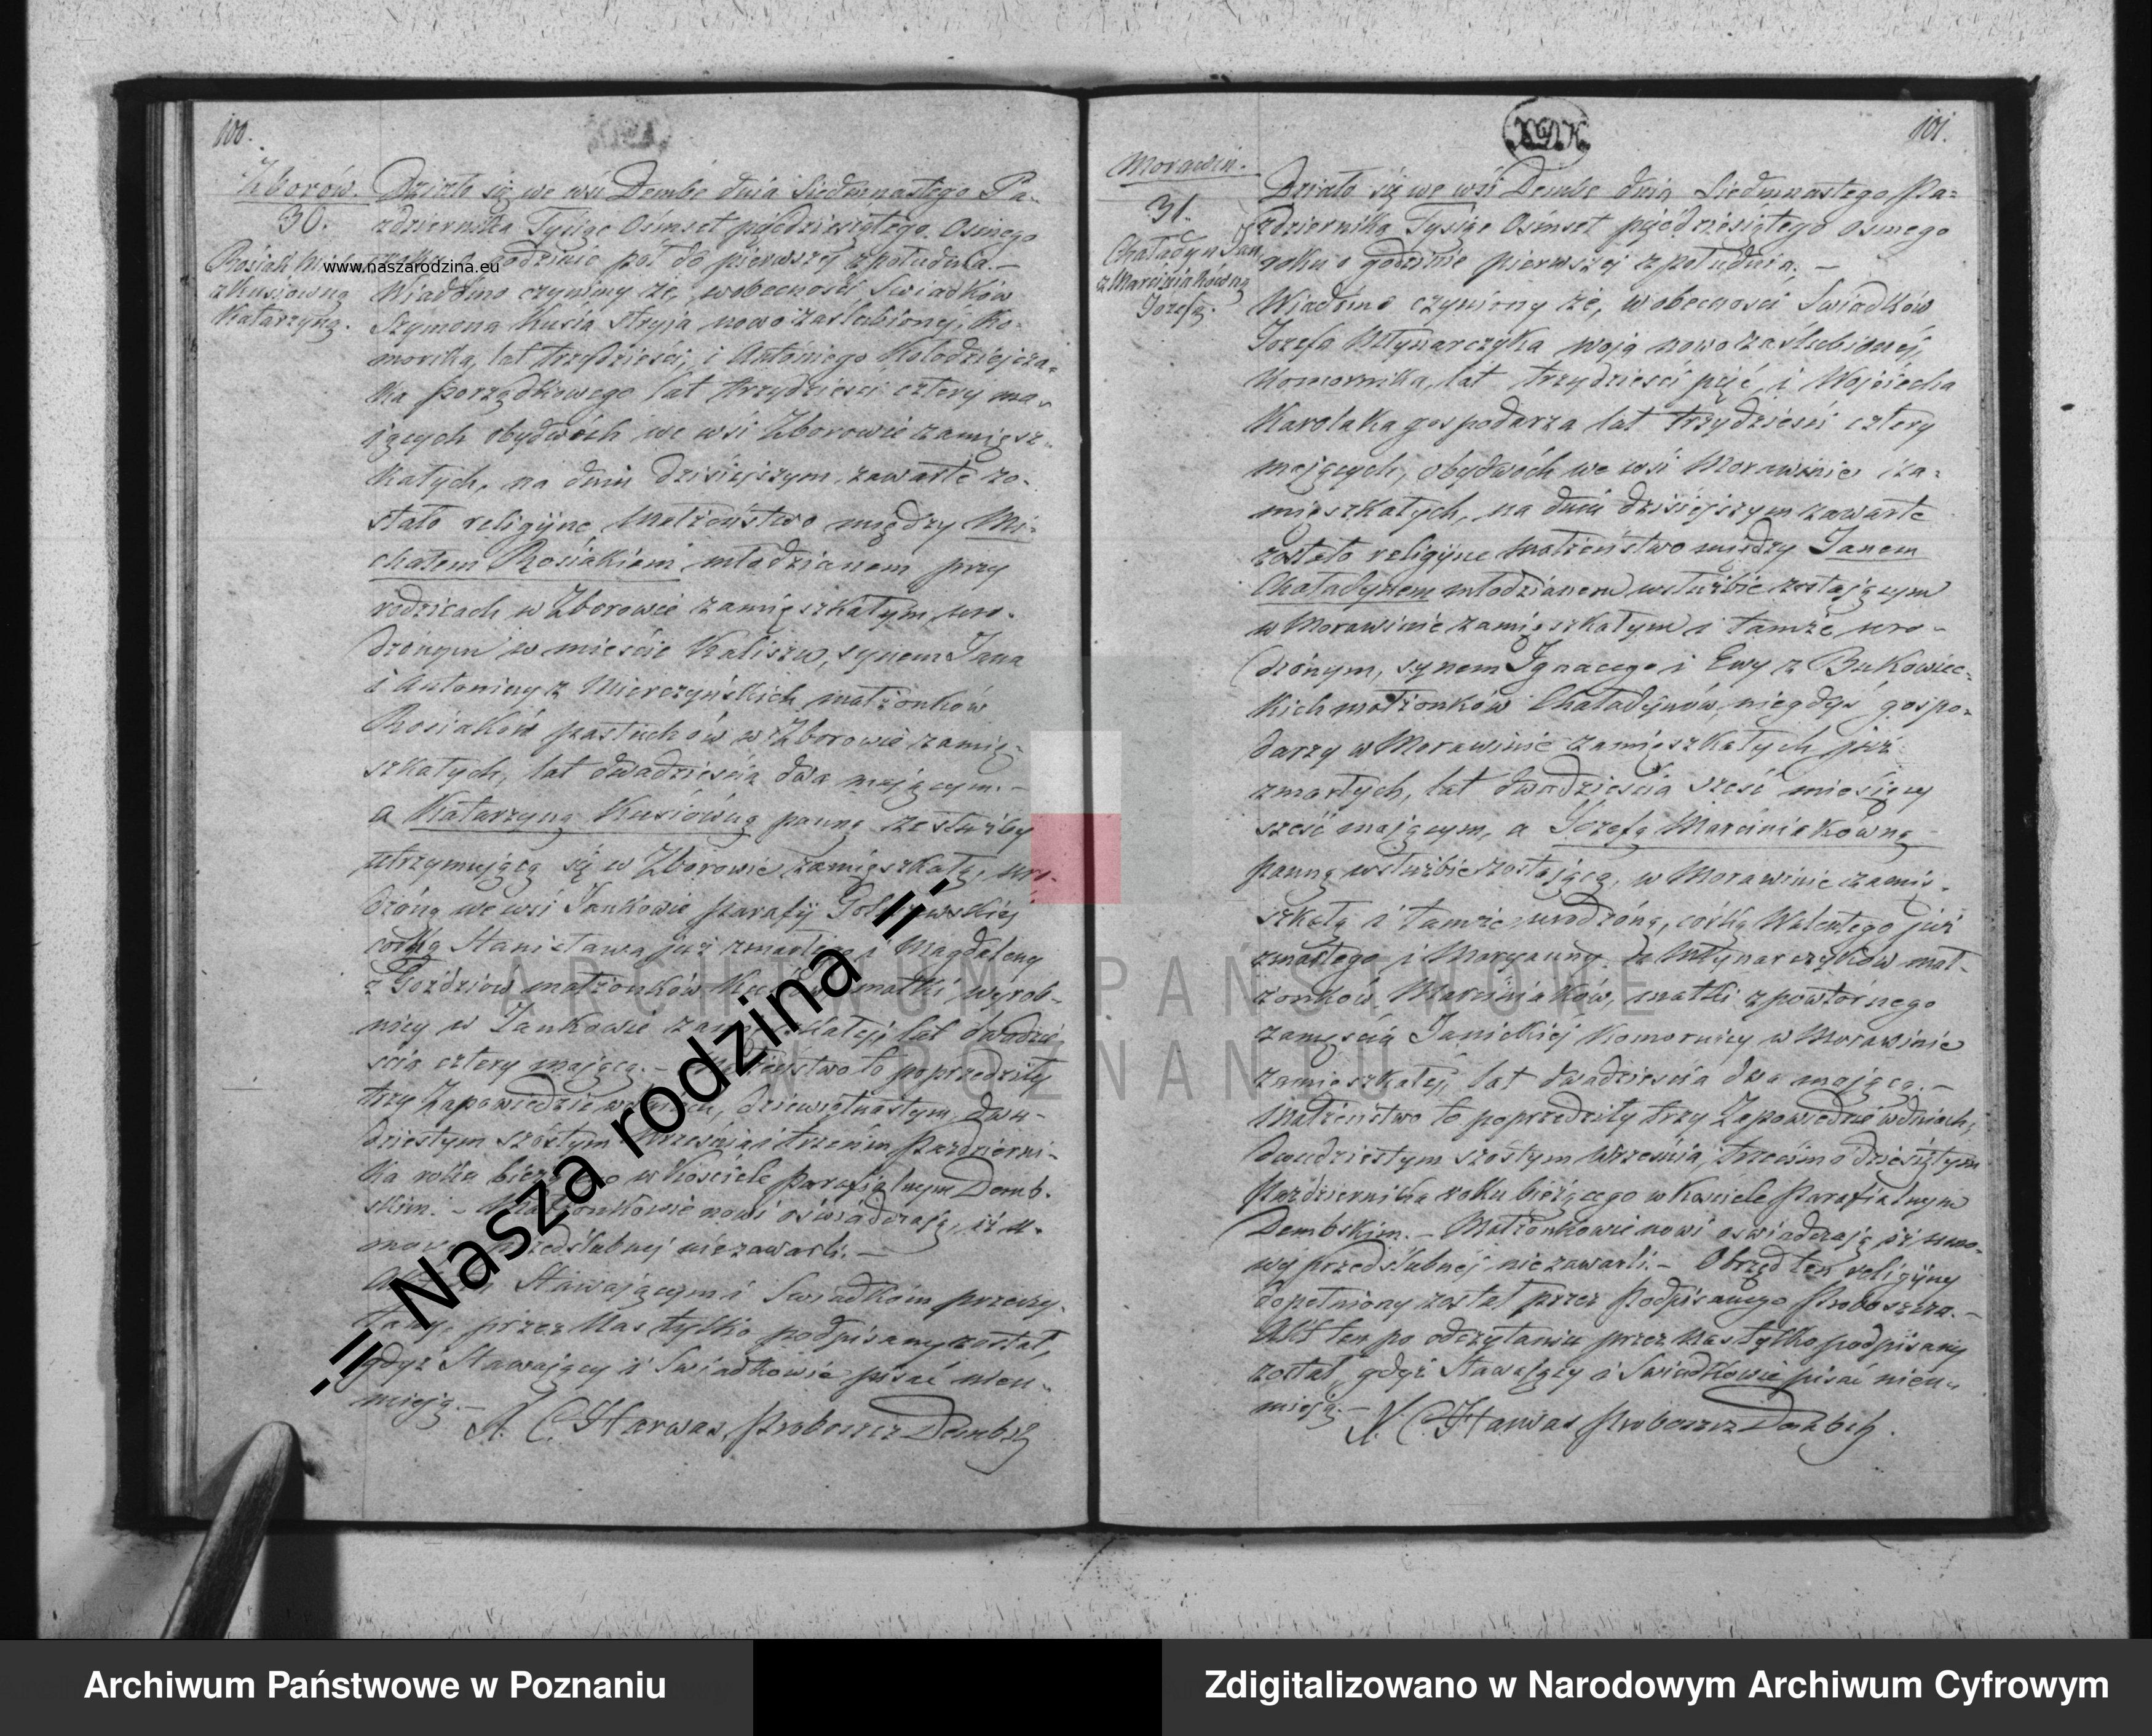 100.
Zborów.
30.
Rosiak
z Kusiówną
Katarzyną.
Działo się we wsi Dembe dnia Siedmnastego Pa-
zdziernika Tysiąc Ośmset pięćdziesiątego Osmego
roku o godzinie pół do pierwszej z południa. —
Wiadomo czynimy że, wobecności Swiadków
Szymona Kusia stryja nowo zaślubionej, Ko-
mornika, lat trzydzieści, i Antoniego Kołodziejcza-
ka porządkowego lat trzydzieści cztery ma-
jących obydwóch we wsi Zborowie zamięsz-
kałych, na dniu dzisiejszym, zawarte zo-
stało religijne Małżeństwo między Mi-
chałem Rosiakiem młodzianem przy
rodzicach w Zborowie zamięszkałym, uro-
dzonym w mieście Kaliszu, synem Jana
i Antoniny z Mierczyńskich małżonków
Rosiaków pastuchów w Zborowie zamię-
szkałych, lat dwadzieścia dwa mającym. —
a Katarzyną Kusiówną panną ze służby
utrzymującą się w Zborowie zamięszkałą, uro-
dzoną we wsi Jankowie parafij
córką Stanisława już zmarłego i Magdaleny
z Goździów małżonków matki wyrob-
nicy w Jankowie lat dwadzie-
ścia cztery mającą. — Małżeństwo to poprzedziły
trzy Zapowiedzie w dniach, dziewiętnastym, dwu-
dziestym szóstym Września i trzecim Pazdzierni-
ka roku w Kościele Parafialnym Demb-
skim. — Małżonkowie nowi oświadczają, iż u-
mowy przedślubnej niezawarli. —
Stawającymi Swiadkom przeczy-
tany, przez Nas tylko podpisany został,
gdyż Stawający i Swiadkowie pisać nieu-
mieją. —
X. C. Harwas Proboszcz Dembski
www.naszarodzina.eu
-:: Nasza rodzina ::-
101.
Morawin.
31.
Chaładyn Jan
z Marciniakówną
Józefą.
Działo się we wsi Dembe dnia Siedmnastego Pa-
zdziernika Tysiąc Ośmset pięćdziesiątego osmego
roku o godzinie pierwszej z południa. —
Wiadomo czynimy że, wobecności Swiadków
Józefa Młynarczyka woja nowo zaślubionej,
Komornika, lat trzydzieści pięć, i Wojciecha
Karolaka gospodarza lat trzydzieści cztery
mających, obydwóch we wsi Morawinie za-
mięszkałych, na dniu dzisiejszym zawarte
zostało religijne Małżeństwo między Janem
Chaładynem młodzianem w służbie zostającym
w Morawinie zamięszkałym i tamże uro-
dzonym, synem Ignacego i Ewy z Bukowiec-
kich małżonków Chaładynów, niegdyś gospo-
darzy w Morawinie zamięszkałych już
zmarłych, lat dwadzieścia sześć miesięcy
sześć mającym, a Józefą Marciniakówną
panną w służbie zostającą, w Morawinie zamię-
szkałą i tamże urodzoną, córką Walentego już
zmarłego i Maryanny z Młynarczyków mał-
żonków Marciniaków, matki z powtórnego
zamęścia Janickiej Komornicy w Morawinie
zamięszkałej, lat dwadzieścia dwa mającą. —
Małżeństwo to poprzedziły trzy Zapowiedzie w dniach,
dwudziestym szóstym Września, trzecim i dziesiątym
Pazdziernika roku bieżącego w Kościele Parafialnym
Dembskim. — Małżonkowie nowi oświadczają iż umo-
wy przedślubnej niezawarli. — Obrzęd ten religijny
dopełniony został przez Podpisanego Proboszcza. —
Akt ten po odczytaniu przez nas tylko podpisany
został, gdyż Stawający i Swiadkowie pisać nieu-
mieją. —
X. C. Harwas Proboszcz Dembski.
ARCHIWUM PAŃSTWOWE
W POZNANIU
Archiwum Państwowe w Poznaniu
Zdigitalizowano w Narodowym Archiwum Cyfrowym